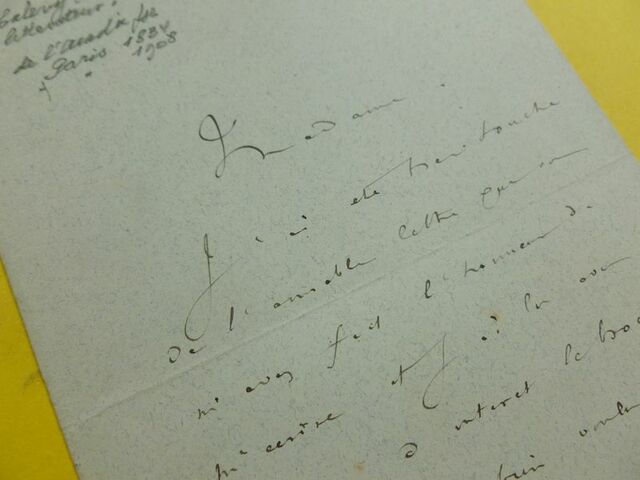 littérateur.
de l'académ. fse
Paris 1834
" 1908
Madame.
J'ai été très touché
de l'aimable lettre que vous
m'avez fait l'honneur de
m'écrire et j'ai lu avec
d'intérêt le
bien voulu